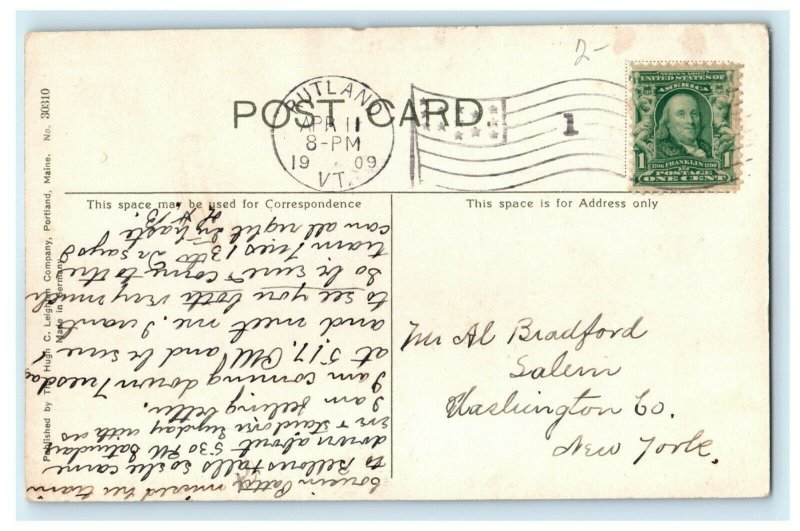 2-
POST CARD.
RUTLAND
APR 11
8-PM
1909
VT.
1
SERIES 1902
UNITED STATES OF
AMERICA
1706 FRANKLIN 1790
1 POSTAGE 1
ONE CENT
This space may be used for Correspondence
This space is for Address only
Published by The Hugh C. Leighton Company, Portland, Maine. No. 30310
Made in Germany
Mr Al Bradford
Salem
Washington Co.
New York.
missed her train
to Bellows Falls so she came
down about 5:30 PM Saturday
+ staid over Sunday with us
I am feeling better.
I am coming down Tuesday
at 5:17, P.M. and be sure
and meet me. I want
to see you both very much
so be sure + come to the
train Tues 13th Dr says I
can all right In haste